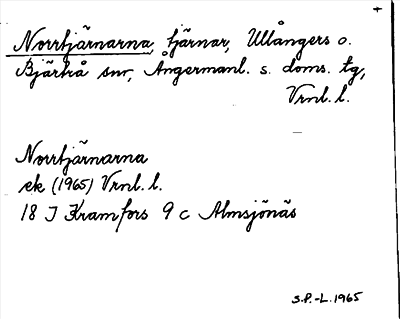 +
Norrtjärnarna, tjärnar, Ullångers o.
Bjärtrå snr, Ångermanl. s. doms. tg,
Vrnl. l.
Norrtjärnarna
ek (1965) Vrnl. l.
18 J Kramfors 9 c Almsjönäs
S.P.-L. 1965